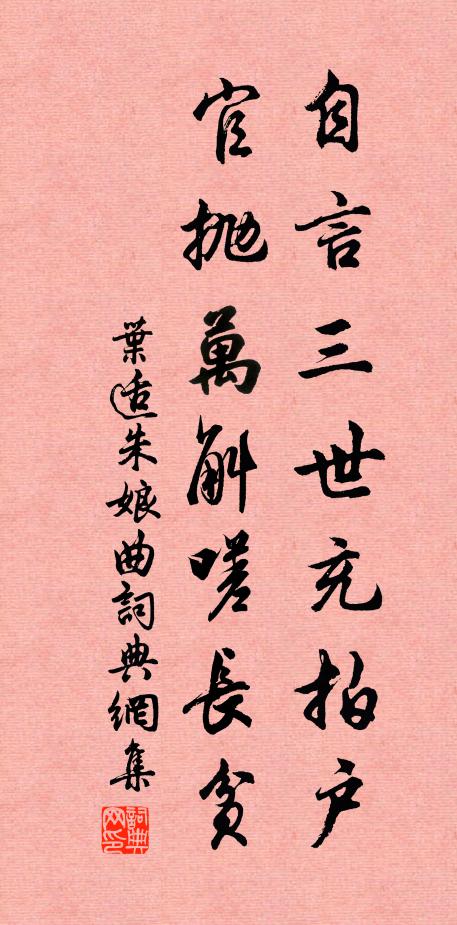 自言三世充拍户
官抛萬斛嗟長貧
葉适朱娘曲詞典網集
詞典网印